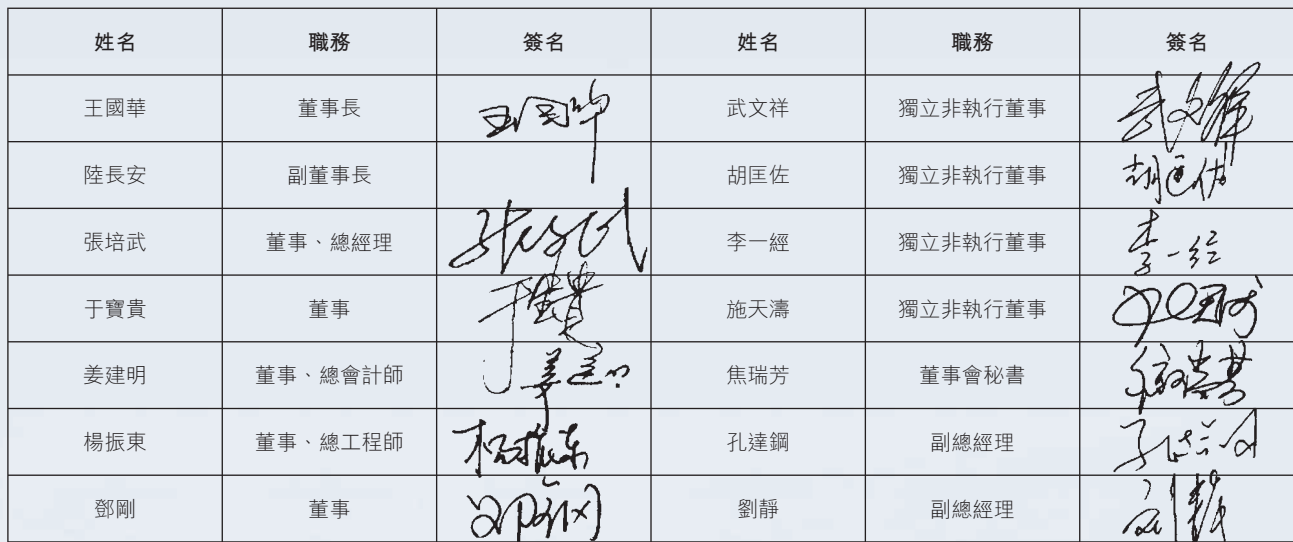 姓名 職務 簽名 姓名 職務 簽名
王國華 董事長 王国华 武文祥 獨立非執行董事 武文祥
陸長安 副董事長 胡匡佐 獨立非執行董事 胡匡佐
張培武 董事、總經理 李一經 獨立非執行董事 李一经
于寶貴 董事 施天濤 獨立非執行董事
姜建明 董事、總會計師 姜建明 焦瑞芳 董事會秘書
楊振東 董事、總工程師 杨振东 孔達鋼 副總經理
鄧剛 董事 劉靜 副總經理